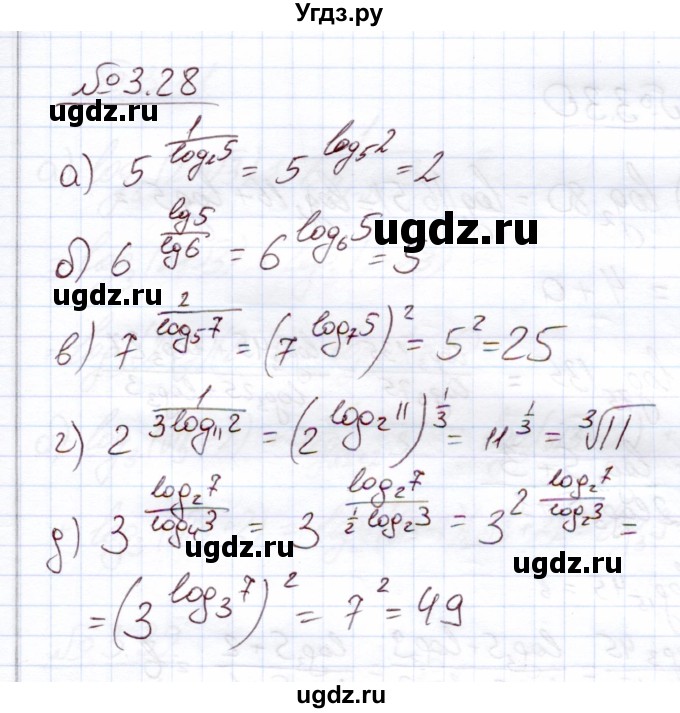 Угдз.ру
№3.28
ugdz.ru
а) 5^(1/log₂5) = 5^(log₅2) = 2
б) 6^(lg5/lg6) = 6^(log₆5) = 5
ugdz.ru ugdz.ru
в) 7^(2/log₅7) = (7^(log₇5))² = 5² = 25
г) 2^(1/(3log₁₁2)) = (2^(log₂11))^(1/3) = 11^(1/3) = ³√11
д) 3^(log₂7/log₄3) = 3^(log₂7/(½log₂3)) = 3^(2 log₂7/log₂3) =
ugdz.ru ugdz.ru ugdz.ru
= (3^(log₃7))² = 7² = 49
ugdz.ru
ugdz.ru